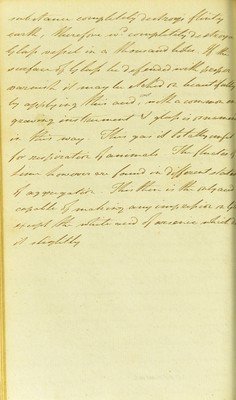 substance completely destroys flinty
earth, therefore wd completely destroy a
Glass vessel in a thousand
surface of Glass be defended with
varnish it may be etched on beautifully
by applying this acid, with a common
graving instrument & glass is
in this way. This gas is totally unfit
for respiration of animals. The fluates of
lime however are found in different states
of aggregation. This then is the only acid
capable of making any impression on glass
except the white acid of arsenic which
it slightly